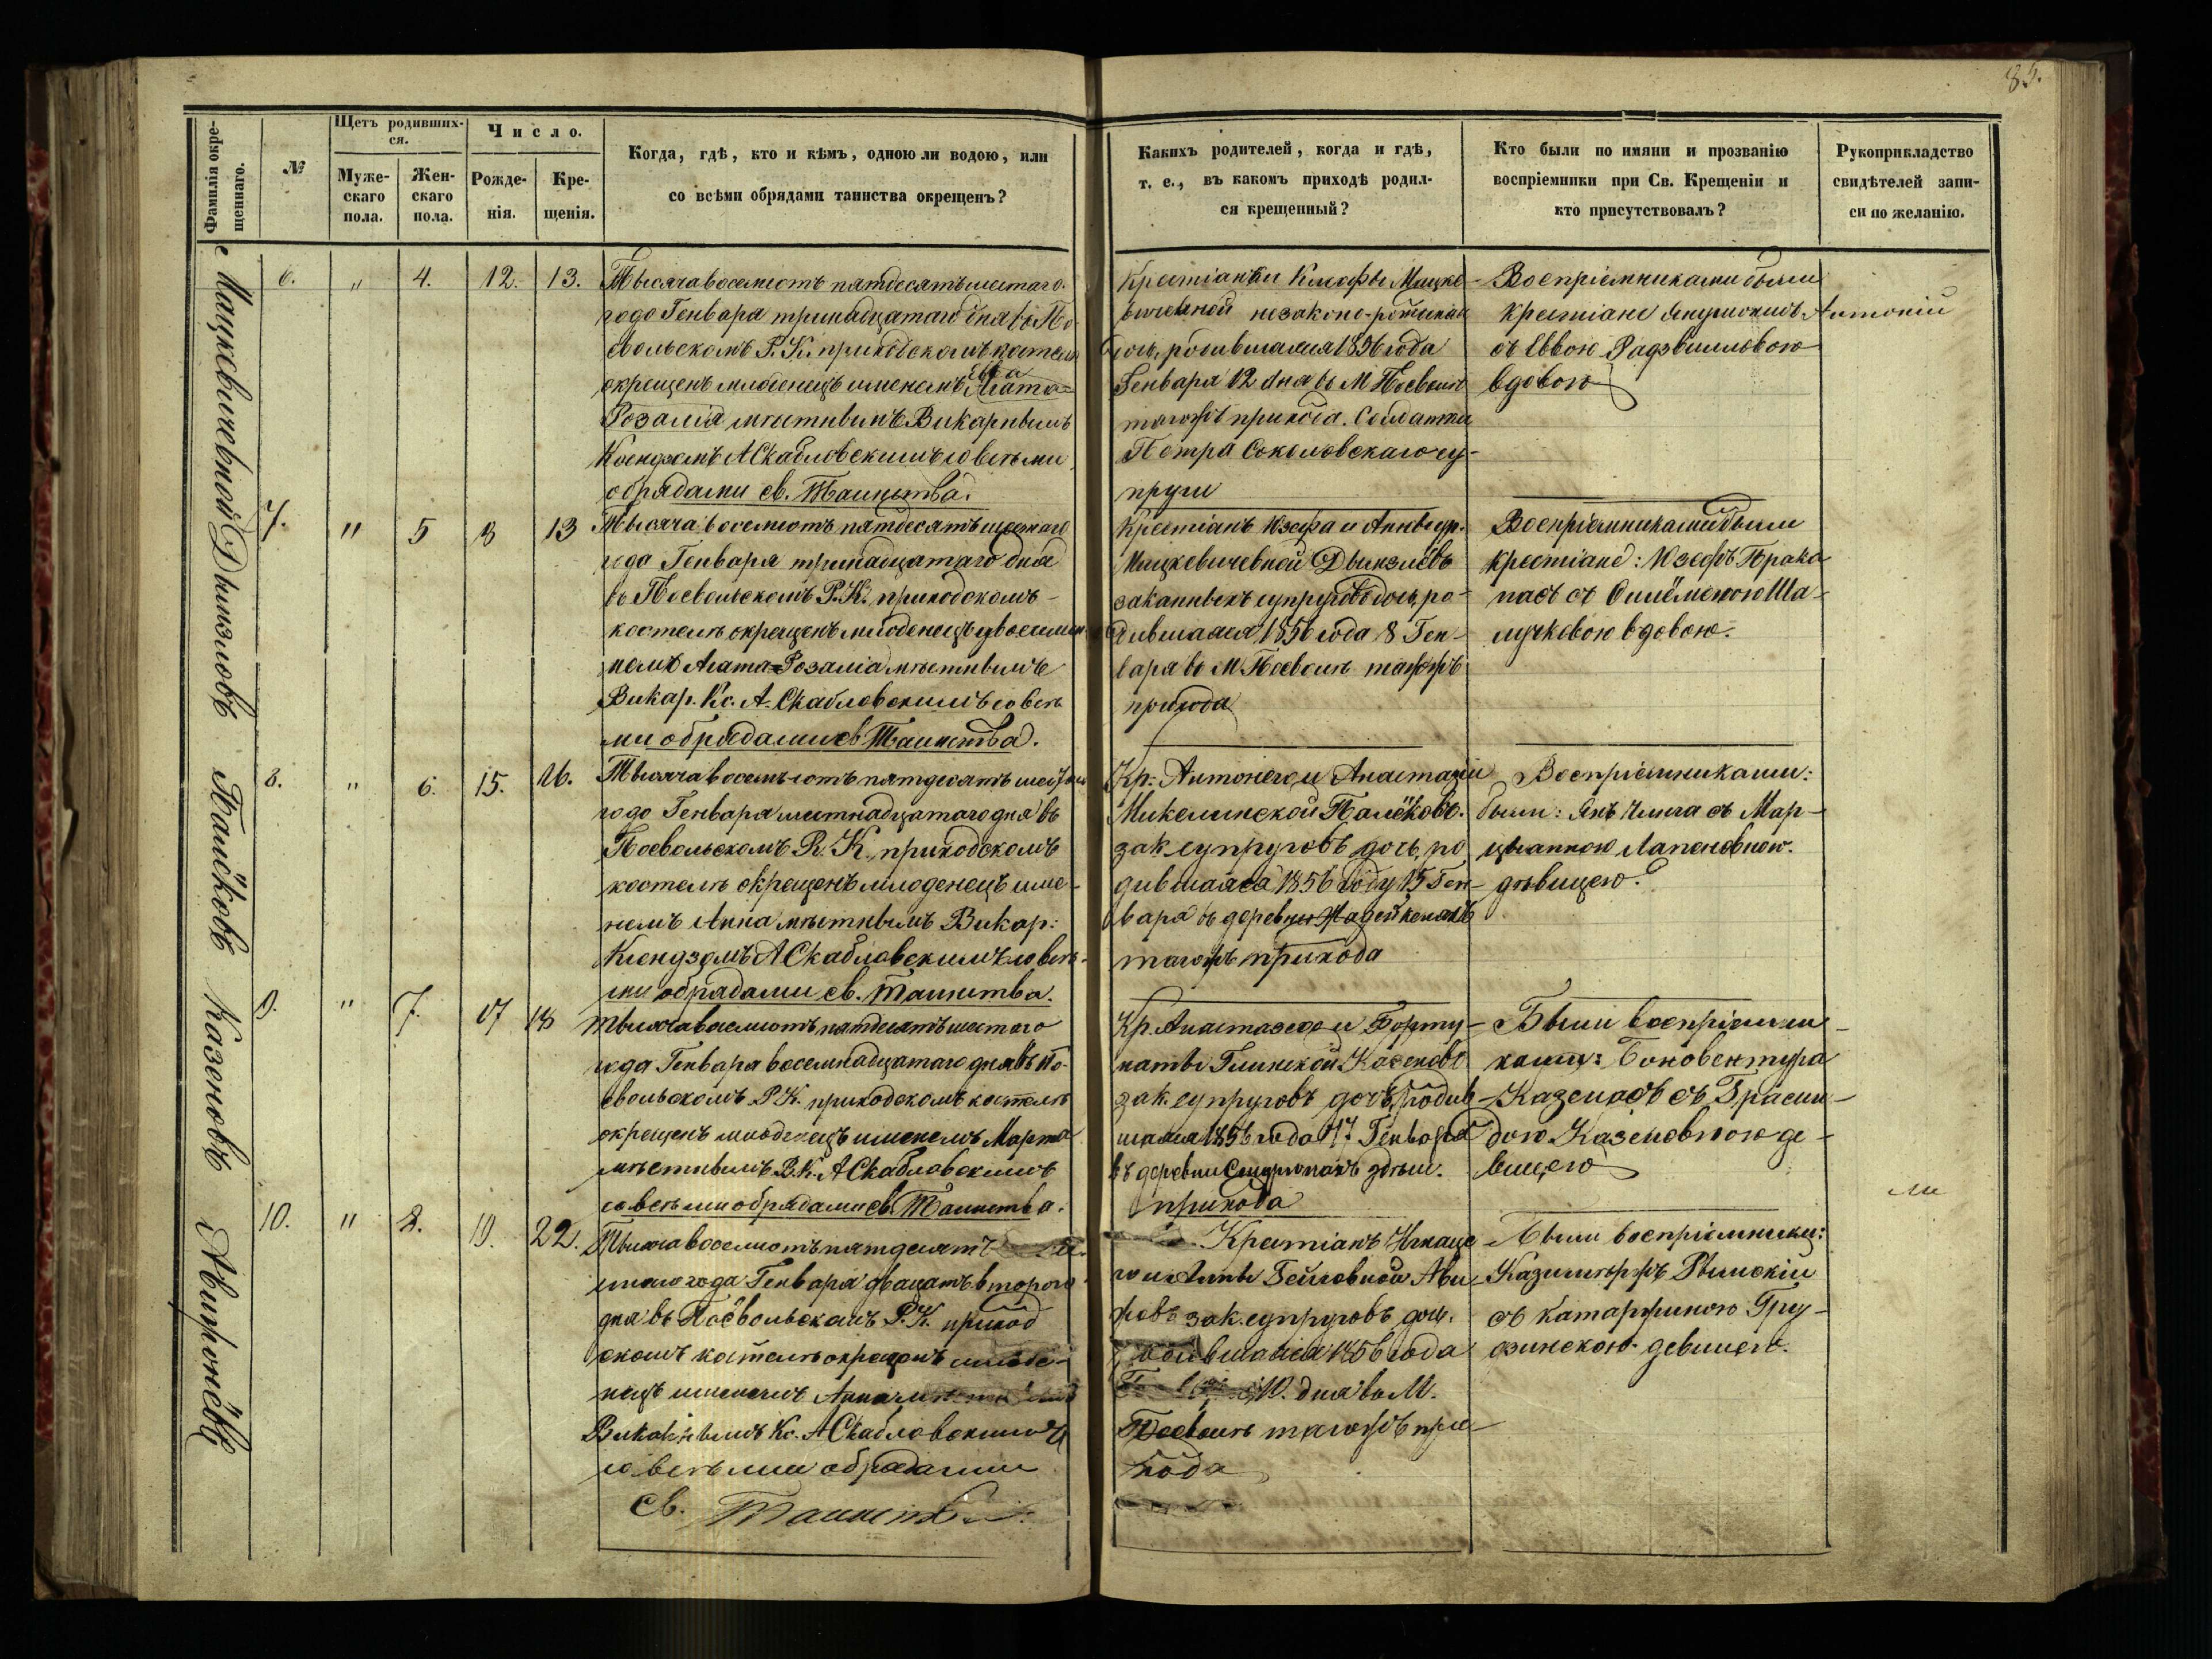 85.
Фамилія окре-
щеннаго.
№
Щетъ родивших-
ся.
Муже-
скаго
пола.
Жен-
скаго
пола.
Число.
Рожде-
нія.
Кре-
щенія.
Когда, гдѣ, кто и кѣмъ, одною ли водою, или
со всѣми обрядами таинства окрещенъ?
Какихъ родителей, когда и гдѣ,
т. е., въ какомъ приходѣ родил-
ся крещенный?
Кто были по имяни и прозванію
воспріемники при Св. Крещеніи и
кто присутствовалъ?
Рукоприкладство
свидѣтелей запи-
си по желанію.
Мацкевичевной
6.
"
4.
12.
13.
Тысяча восемьсотъ пятдесятъ шестаго
года Генвара тринадцатаго дня въ По-
евольскомъ Р. К. приходскомъ костелѣ
окрещенъ младенецъ именемъ Ева
Розалія мѣстнымъ Викарнымъ
Ксендзомъ А Скабловскимъ со всѣми
обрядами св. Таинства.
Крестіанки Мацке-
вичевной незаконо-
дочь, родившаяся 1856 года
Генваря 12 дня въ М Поеволѣ
тогожъ прихода. Солдатки
Петра Соколовскаго су-
пруги
Воспріемниками были
крестіане Антоній
съ Еввою Радзвилловою
вдовою
Дымзловъ
7.
"
5
8
13
Тысяча восемьсотъ пятдесятъ шестаго
года Генваря тринадцатаго дня
въ Поевольскомъ Р. К. приходскомъ
костелѣ окрещенъ младенецъ двоеиме
немъ Агата=Розалія мѣстнымъ
Викар. Кс. А. Скабловскимъ со всѣ
ми обрядами св Таинства.
Крестіанъ Юзефа и Анны ур.
Мицкевичевной Дымзлёвъ
законныхъ супруговъ дочь, ро-
дившаяся 1856 года 8 Ген-
варя въ М Поеволѣ тогожъ
прихода
Воспріемниками были
крестіане: Юзефъ Прака
пасъ съ Ша-
лучковою вдовою.
Палёковъ
8.
"
6.
15.
16.
Тысяча восемьсотъ пятдесятъ шестаго
года Генваря шестнадцатаго дня въ
Поевольскомъ Р. К. приходскомъ
костелѣ окрещенъ младенецъ име-
немъ Анна мѣстнымъ Викар:
Ксендзомъ А Скабловскимъ со всѣ-
ми обрядами св. Таинства.
Кр: Антонего и Анастазіи
Микелинской Палёковъ.
зак. супруговъ дочь, ро
дившаяся 1856 году 15 Ген-
варя въ деревни
тогожъ прихода
Воспріемниками:
были: Янъ съ Мар-
цыанною Лапеновною.
дѣвицею.
Казеновъ
9.
"
7.
17
18
Тысяча восемьсотъ пятдесятъ шестаго
года Генваря восемнадцатаго дня въ По-
евольскомъ Р К. приходскомъ костелѣ
окрещенъ младенецъ именемъ Марта
мѣстнымъ В. К. А Скабловскимъ
со всѣми обрядами св. Таинства.
Кр. Анастазего и Форту-
наты Глинской Казеновъ
зак. супруговъ дочь, родив
шаяся 1856 года 17 Генваря
въ деревни здѣш.
прихода
Были воспріемни-
ками: Боновентура
Казенасъ съ
Казеновною де-
вицею
Авижонёвъ
10.
"
8.
19.
22.
Тысяча восемьсотъ пятдесятъ
года Генваря двацатъ второго
дня въ Поевольскомъ Р. К. приход
скомъ костелѣ окрещенъ младе-
нецъ именемъ Анна
Викарнымъ Кс. А Скабловскимъ
со всѣми обрядами
св. Таинства.
Крестіанъ Игнаце
го и Анны Ави
зак. супруговъ дочь.
родившаяся 1856 года
19. дня въ М.
Поеволѣ тогожъ при-
хода
Были воспріемники:
Казимержъ Рымскій
съ Катаржиною Гру-
зинскою девицею.